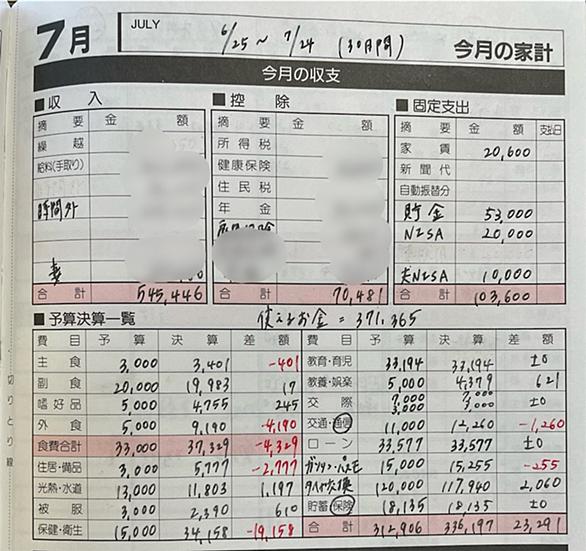 7月 JULY 6/25 ~ 7/24 (30日間) 今月の家計
今月の収支
■収入 ■控除 ■固定支出
摘要 金額 摘要 金額 摘要 金額 支払日
繰越 所得税 家賃 20,600
給料(手取り) 健康保険 新聞代
住民税 自動振替分
時間外 年金 貯金 53,000
NISA 20,000
妻 夫NISA 10,000
合計 545,446 合計 70,481 合計 103,600
■予算決算一覧 使えるお金 = 371,365
費目 予算 決算 差額 費目 予算 決算 差額
主食 3,000 3,401 -401 教育・育児 33,194 33,194 ±0
副食 20,000 19,983 17 教養・娯楽 5,000 4,379 621
嗜好品 5,000 4,755 245 交際 7,000 3,000 7,000 3,000 ±0
外食 5,000 9,190 -4,190 交通・通信 11,000 12,260 -1,260
食費合計 33,000 37,329 -4,329 ローン 33,577 33,577 ±0
住居・備品 3,000 5,777 -2,777 ガソリン・パスモ 15,000 15,255 -255
光熱・水道 13,000 11,803 1,197 タイヤ交換 120,000 117,940 2,060
被服 3,000 2,390 610 貯蓄・保険 18,135 18,135 ±0
保健・衛生 15,000 34,158 -19,158 合計 312,906 336,197 23,291
切りとり線